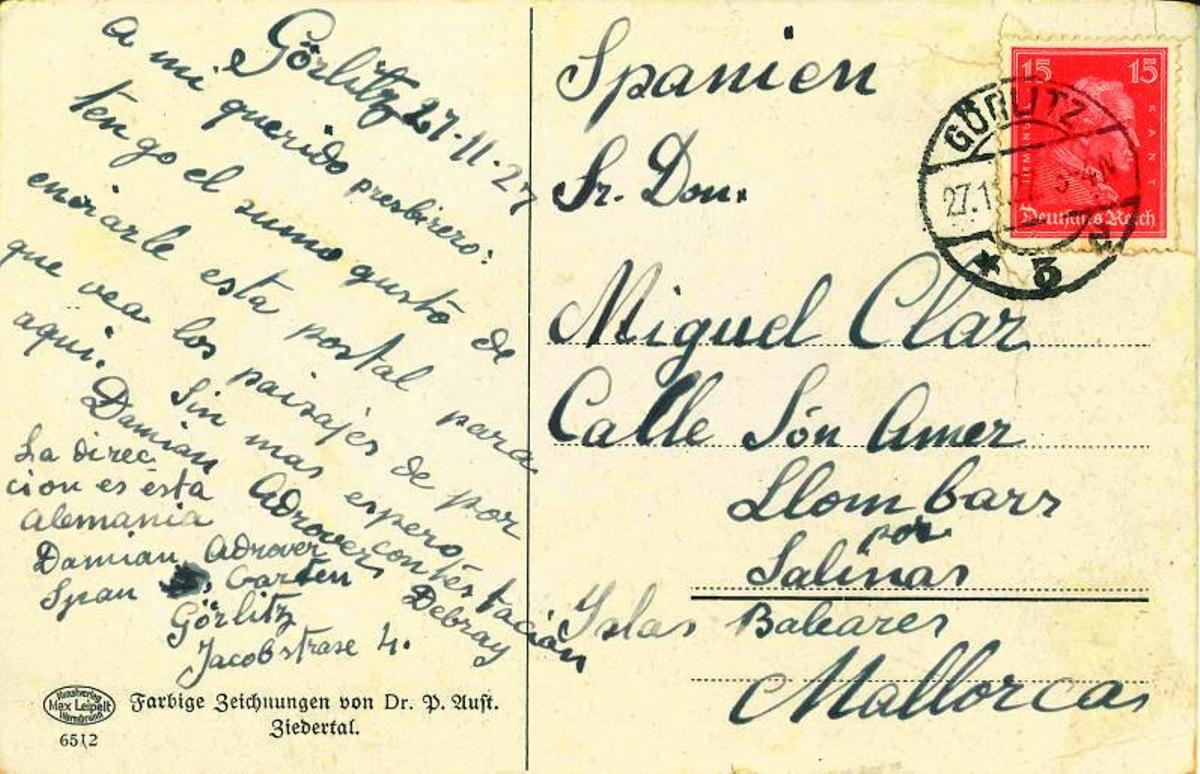 Görlitz 27-11-27
a mi querido presbirero:
tengo el sumo gusto de
enviarle esta postal para
que vea los paisajes de por
aqui. Sin mas espero
contestación
Damian Adrover Debray
La direc
cion es esta
alemania
Damian Adrover
Span Garten
Görlitz
Jacobstrase 4.
Kunstverlag
Max Leipelt
Warmbrunn
6512
Farbige Zeichnungen von Dr. P. Aust.
Ziedertal.
Spanien
Sr. Don.
Miguel Clar
Calle Són Amer
Llombarr
por
Salinas
Islas Baleares
Mallorca
15 15
KANT
Deutsches Reich
GÖRLITZ
27.1
* 3